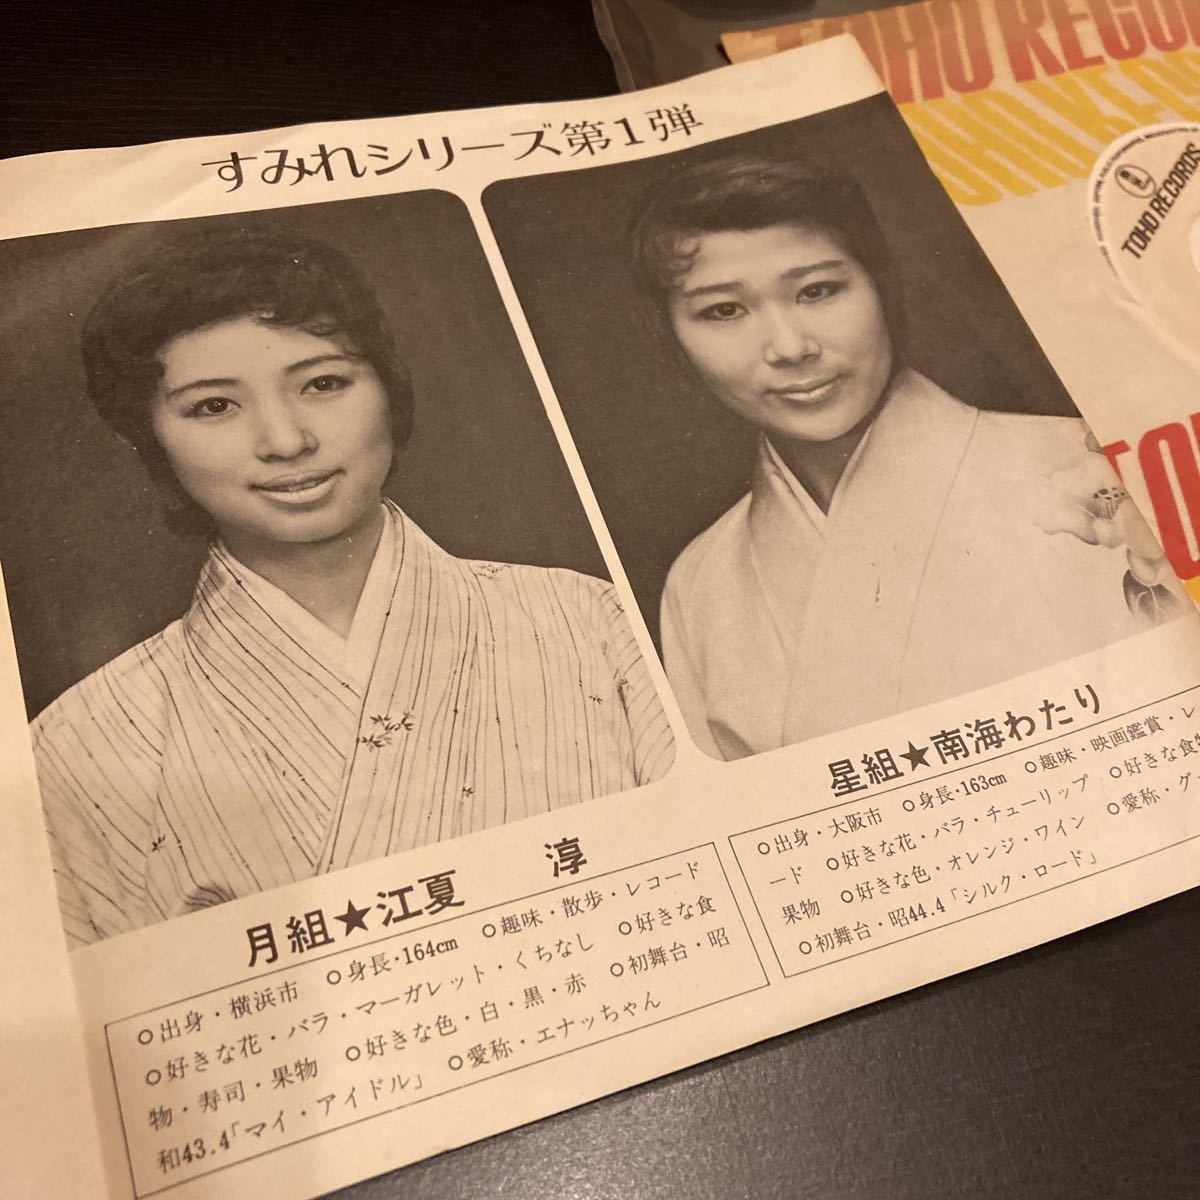 すみれシリーズ第1弾
月組★江夏　淳
○出身・横浜市　○身長・164cm　○趣味・散歩・レコード
○好きな花・バラ・マーガレット・くちなし　○好きな食
物・寿司・果物　○好きな色・白・黒・赤　○初舞台・昭
和43.4「マイ・アイドル」　○愛称・エナッちゃん
星組★南海わたり
○出身・大阪市　○身長・163cm　○趣味・映画鑑賞・レ
ード　○好きな花・バラ・チューリップ　○好きな食物
果物　○好きな色・オレンジ・ワイン　○愛称・グッ
○初舞台・昭44.4「シルク・ロード」
TOHO RECO
TOHO RECORDS